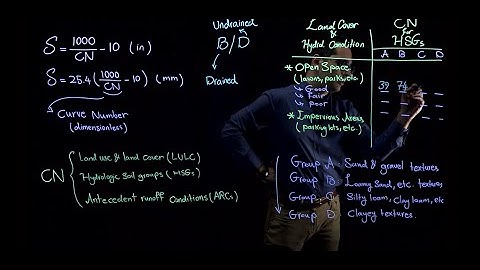 S = 1000/CN - 10 (in)
S = 25.4 (1000/CN - 10) (mm)
Curve Number
(dimensionless)
CN { Land use & land cover (LULC)
Hydrologic soil groups (HSGs)
Antecedent runoff Conditions (ARCs)
Undrained
B/D
Drained
Land Cover
&
Hydrol Condition
CN
for
HSGs
A B C D
* Open Space
(lawns, parks, etc.)
Good 39 74
Fair
poor
* Impervious Areas
(parking lots, etc.)
Group A Sand & gravel textures
Group B Loamy Sand, etc. textures
Group C Silty loam, Clay loam, etc
Group D Clayey textures.